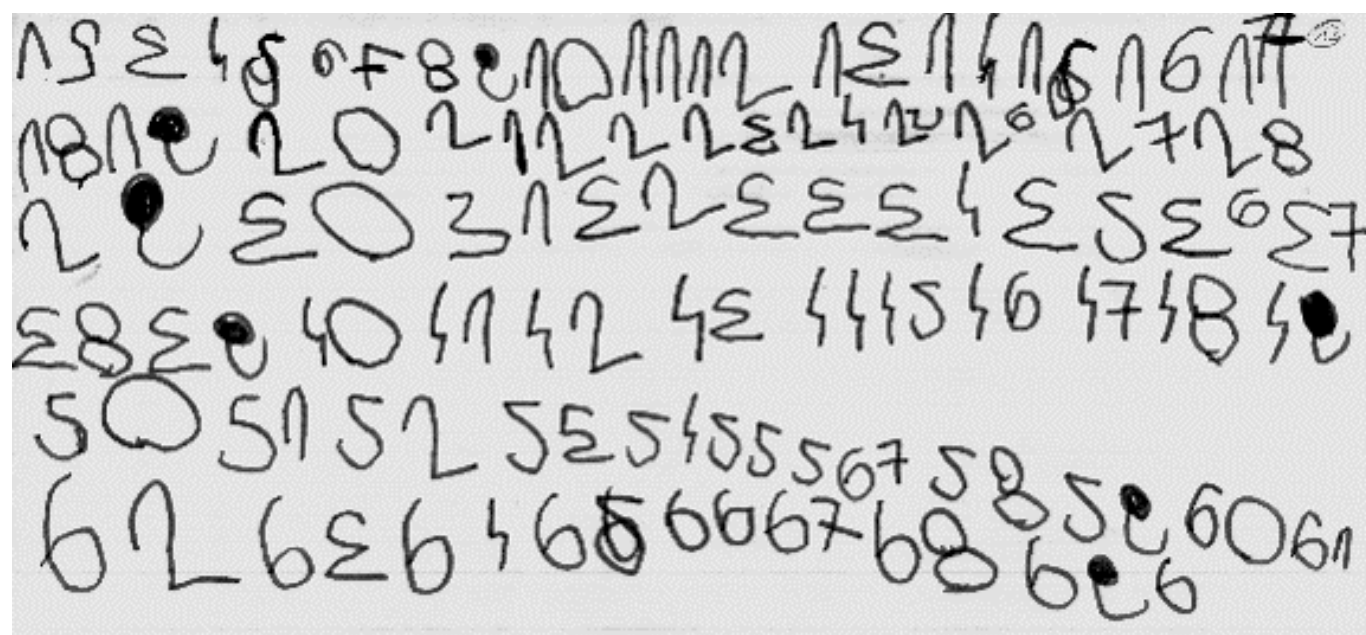 1 2 3 4 5 6 7 8 9 10 11 12 13 14 15 16 17
18 19 20 21 12 22 23 24 25 26 27 28
29 30 31 32 33 34 35 36 37
38 39 40 41 42 43 44 45 46 47 48 49
50 51 52 53 54 55 567 58 59 60 61
62 63 64 65 66 67 68 69 6